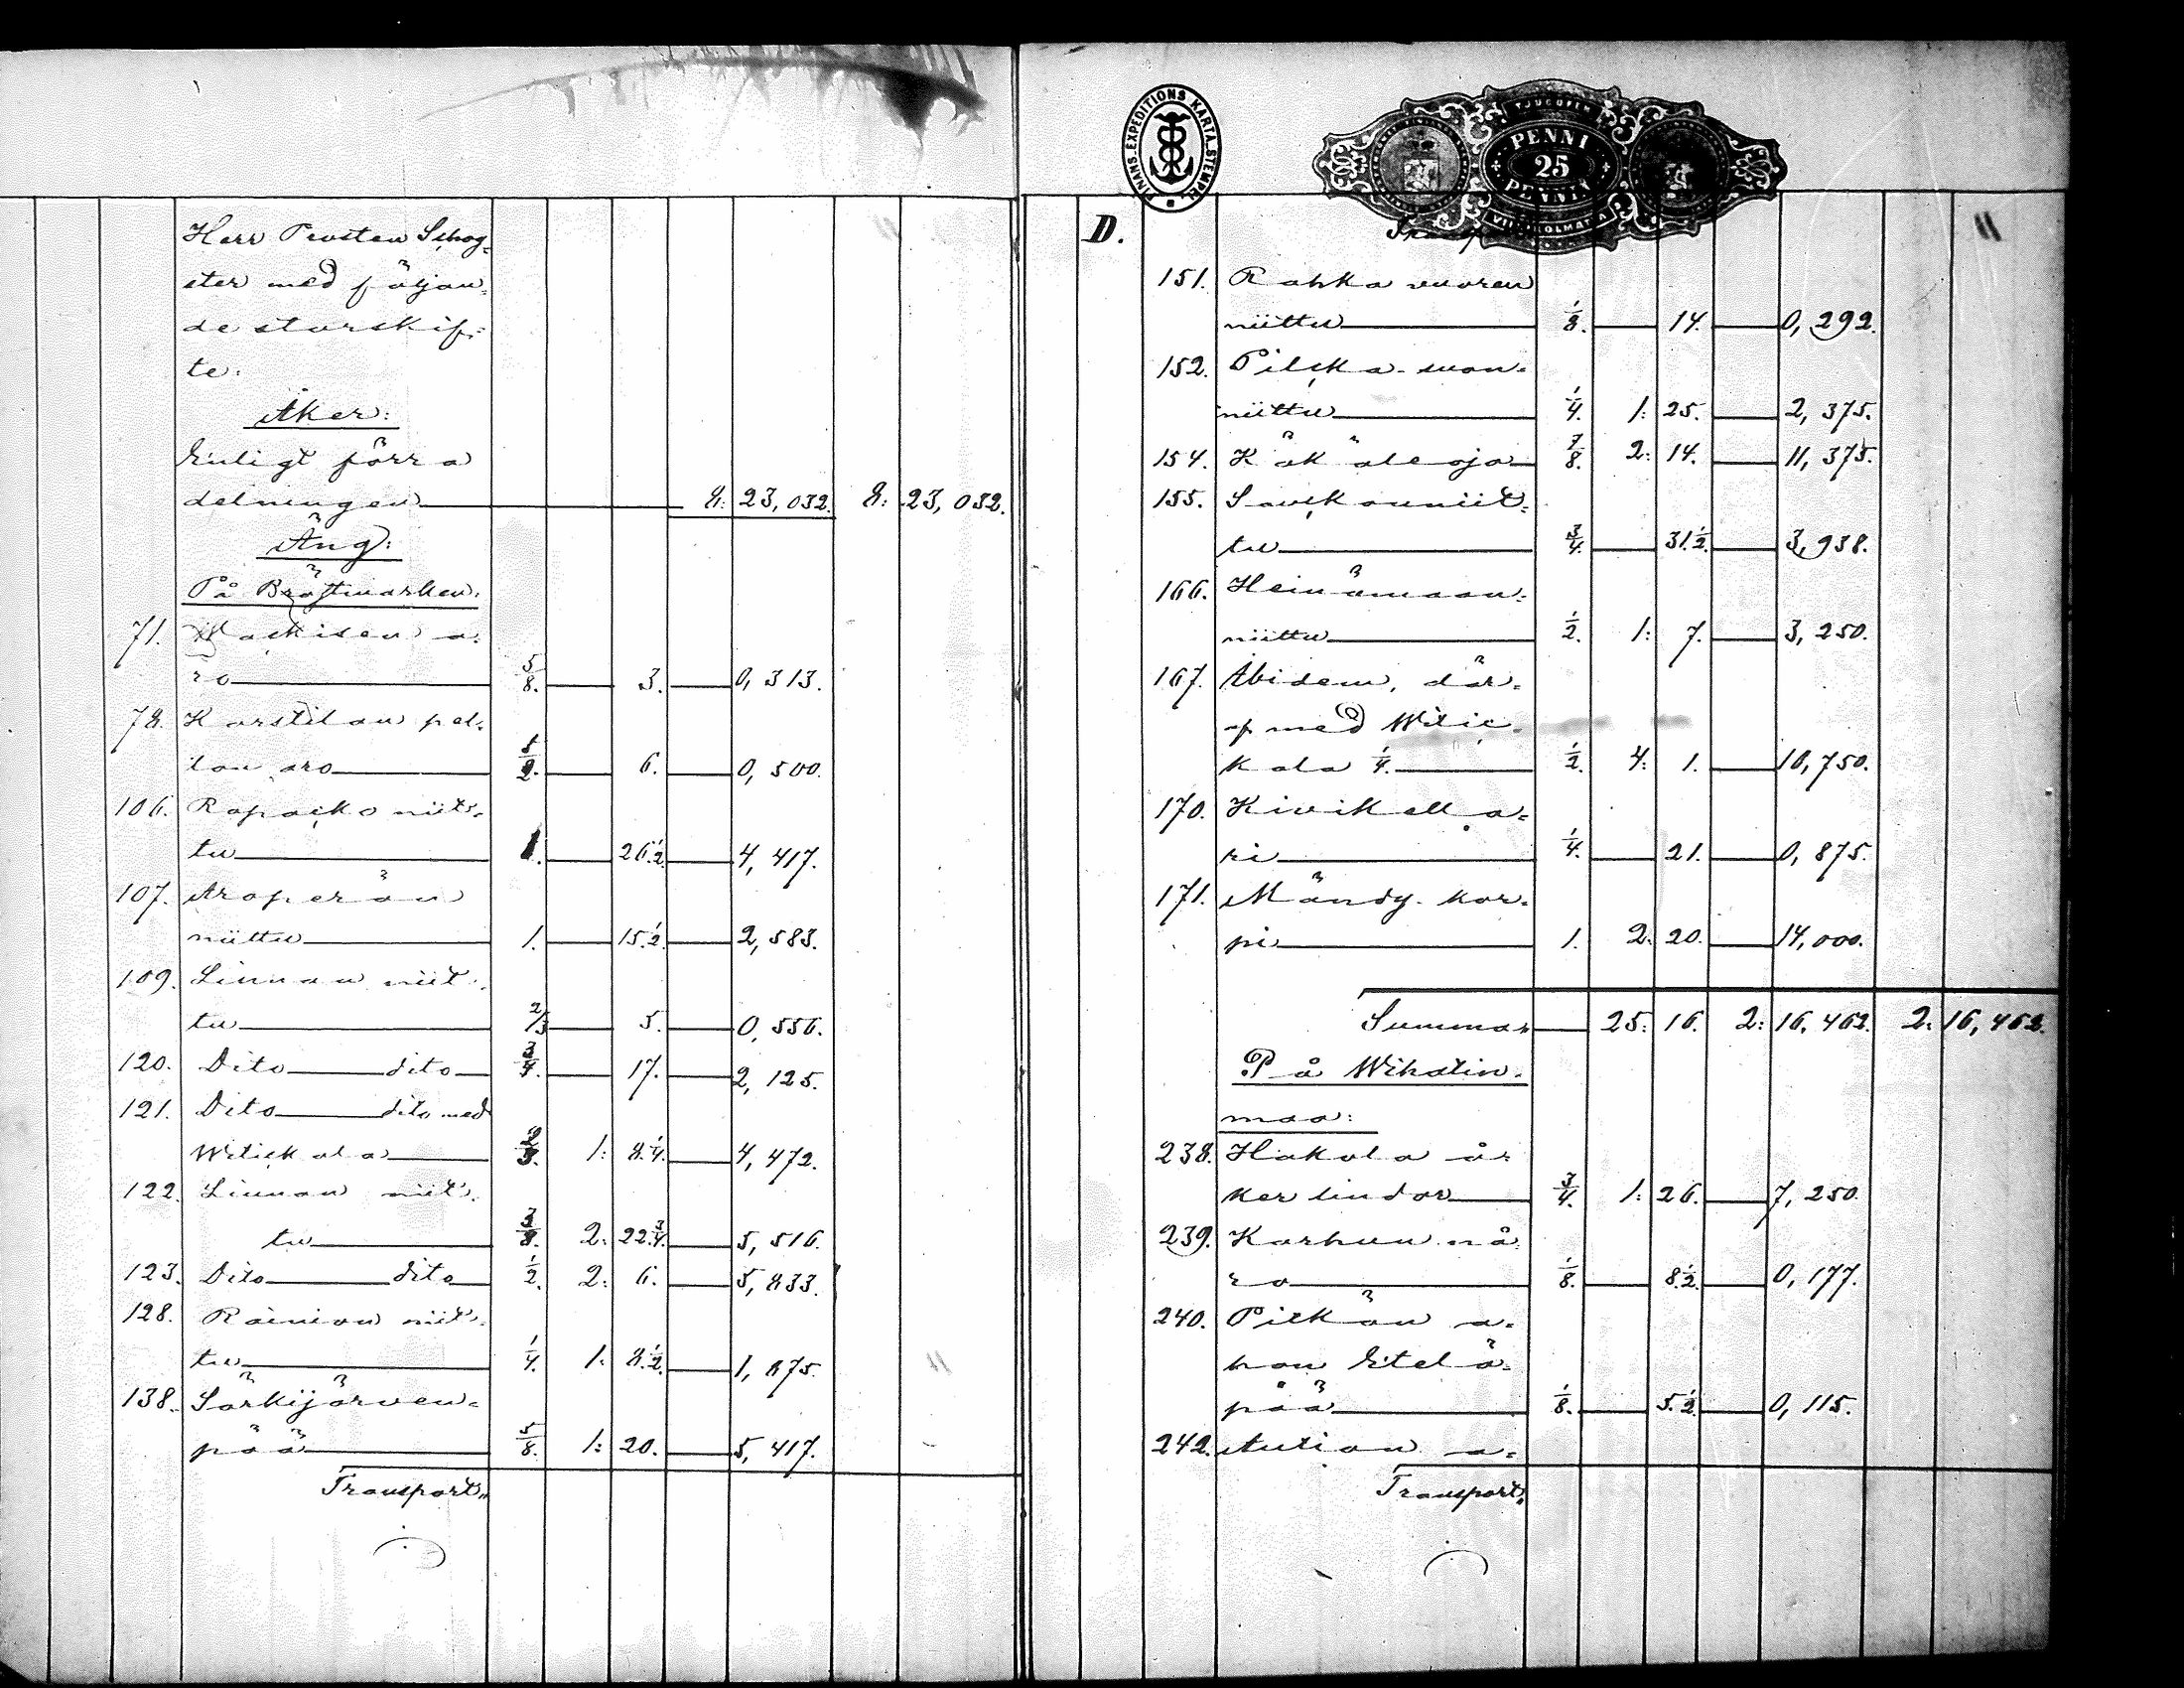 Herr Prosten Schog-
ster med följan-
de storskif-
te.
Åker:
Enligt förra
delningen 8: 23,032. 8: 23,032.
Äng:
På Bråtmarken.
71. Wackisen a-
ro 5/8. 3. 0,313.
78. Karstilan pel-
lon aro 1/2. 6. 0,500.
106. Rapacko niit-
tu 1. 26.1/2 4,417.
107. Aroperän
niittu 1. 15.1/2 2,583.
109. Linnan niit-
tu 2/3 5. 0,556.
120. Dito dito 3/4. 17. 2,125.
121. Dito dito med
Witickala 1: 8.1/4. 4,472.
122. Linnan niit-
tu 3/8. 2: 22.3/4. 5,516.
123. Dito dito 1/2. 2: 6. 5,833.
128. Rainion niit-
tu 1/4. 1: 8.1/2. 1,875.
138. Särkijärven-
pää 5/8. 1: 20. 5,417.
Transport.
FINANS-EXPEDITIONS KARTA-STEMPEL
TJUGUFEM
PENNI
25
PENNIÄ
D. Transport 11
151. Rahkavuoren
niittu 1/8. 14. 0,292.
152. Pilcka-suon-
niittu 1/4. 1: 25. 2,375.
154. Käkäleoja 7/8. 2: 14. 11,375.
155. Savckonniit-
tu 3/4. 31.1/2 3,938.
166. Heinämaan-
niittu 1/2. 1: 7. 3,250.
167. Ibidem, där-
af med Witic-
kala 1/4. 1/2. 4: 1. 10,750.
170. Kivikella-
ri 1/4. 21. 0,875.
171. Mändy-kor-
pi 1. 2: 20. 14,000.
Summa 25: 16. 2: 16,462. 2: 16,462.
På Wihatin-
maa:
238. Hakala å-
ker lindor 3/4. 1: 26. 7,250.
239. Karhun nå
ro 1/8. 8.1/2. 0,177.
240. Pitkän a-
hon Etelä-
pää 1/8. 5.1/2 0,115.
242. Aution a-
Transport.